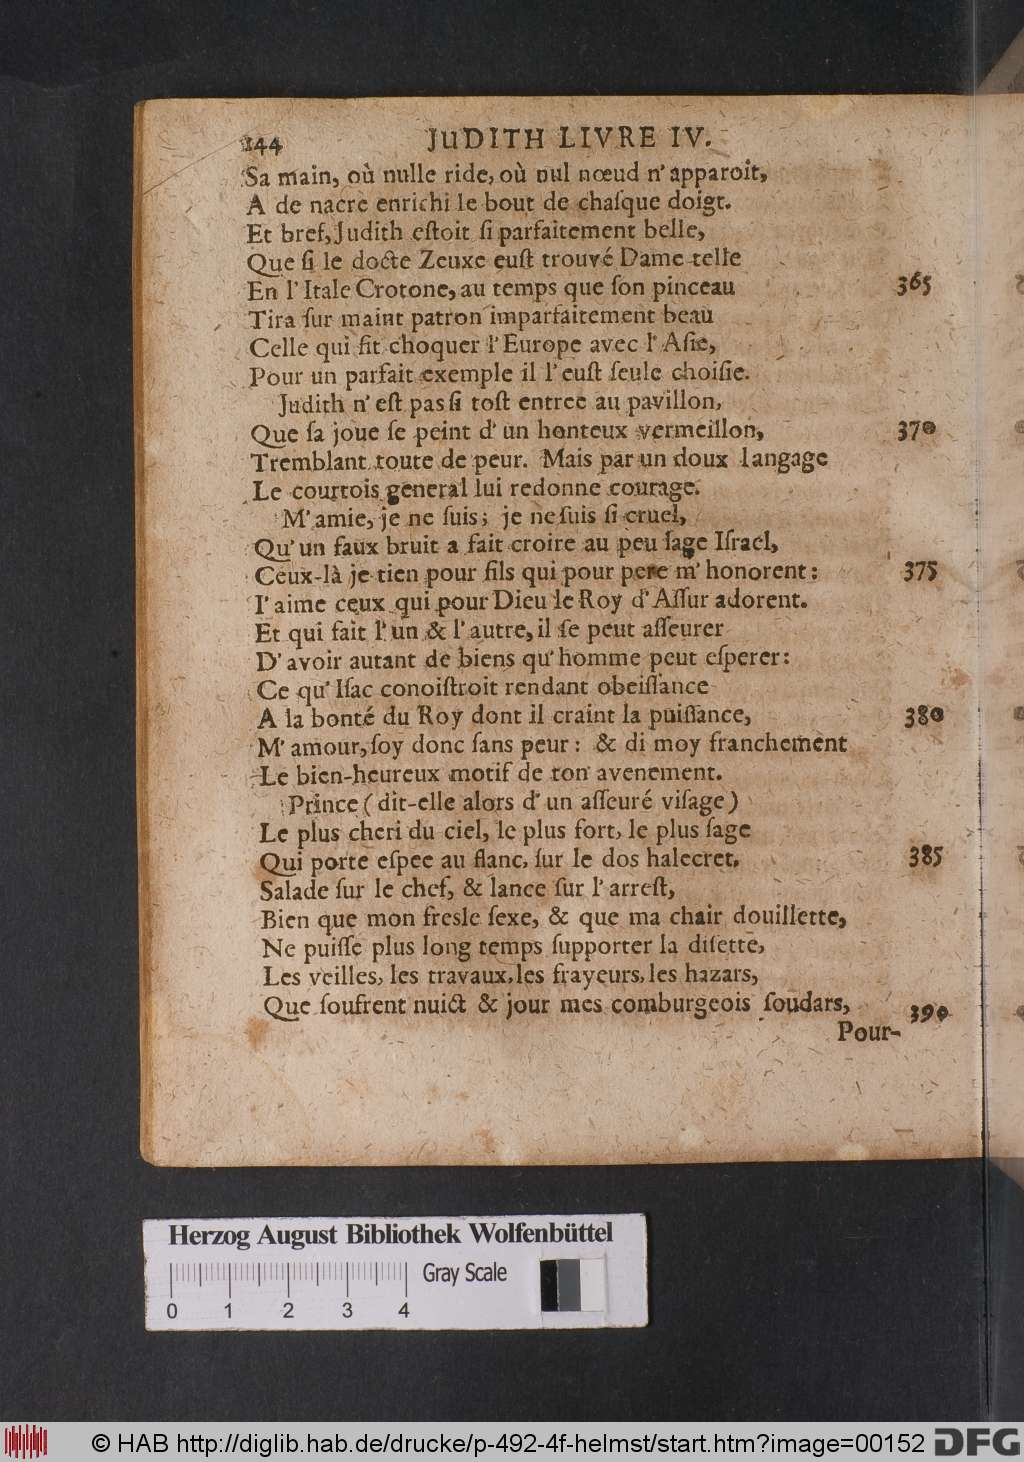 144 JuDITH LIVRE IV.
Sa main, où nulle ride, où nul nœud n'apparoit,
A de nacre enrichi le bout de chaſque doigt.
Et bref, Judith eſtoit ſi parfaitement belle,
Que ſi le docte Zeuxe euſt trouvé Dame telle
En l'Itale Crotone, au temps que ſon pinceau 365
Tira ſur maint patron imparfaitement beau
Celle qui fit choquer l'Europe avec l'Aſie,
Pour un parfait exemple il l'euſt ſeule choiſie.
Judith n'eſt pas ſi toſt entree au pavillon,
Que ſa joue ſe peint d'un honteux vermeillon, 370
Tremblant toute de peur. Mais par un doux langage
Le courtois general lui redonne courage.
M'amie, je ne ſuis; je ne ſuis ſi cruel,
Qu'un faux bruit a fait croire au peu ſage Iſrael,
Ceux-là je tien pour fils qui pour pere m'honorent: 375
I'aime ceux qui pour Dieu le Roy d'Aſſur adorent.
Et qui fait l'un & l'autre, il ſe peut aſſeurer
D'avoir autant de biens qu'homme peut eſperer:
Ce qu'Iſac conoiſtroit rendant obeiſſance
A la bonté du Roy dont il craint la puiſſance, 380
M'amour, ſoy donc ſans peur: & di moy franchement
Le bien-heureux motif de ton avenement.
Prince (dit-elle alors d'un aſſeuré viſage)
Le plus cheri du ciel, le plus fort, le plus ſage
Qui porte eſpee au flanc, ſur le dos halecret, 385
Salade ſur le chef, & lance ſur l'arreſt,
Bien que mon freſle ſexe, & que ma chair douillette,
Ne puiſſe plus long temps ſupporter la diſette,
Les veilles, les travaux, les frayeurs, les hazars,
Que ſoufrent nuict & jour mes comburgeois ſoudars, 390
Pour-
Herzog August Bibliothek Wolfenbüttel
Gray Scale
0 1 2 3 4
© HAB http://diglib.hab.de/drucke/p-492-4f-helmst/start.htm?image=00152 DFG